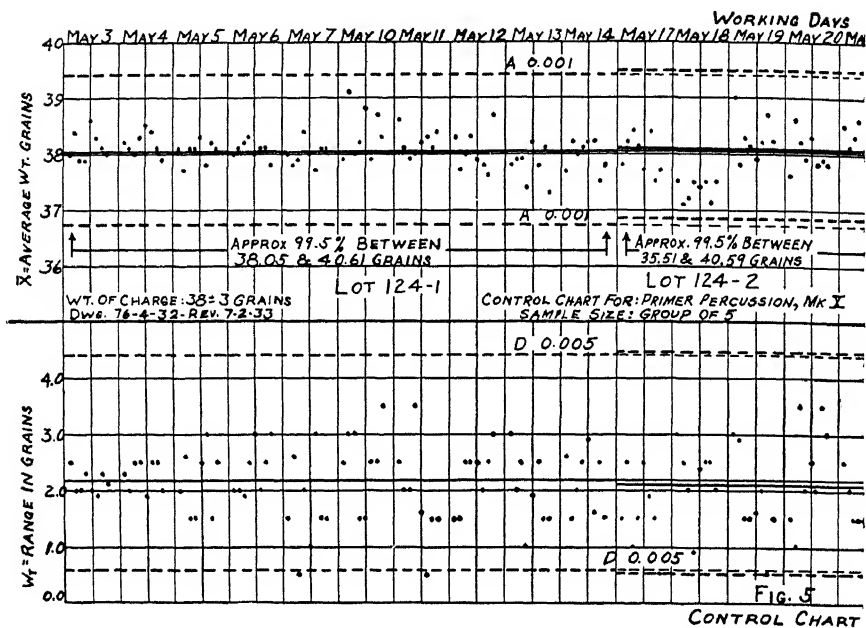 WORKING DAYS
MAY 3 MAY 4 MAY 5 MAY 6 MAY 7 MAY 10 MAY 11 MAY 12 MAY 13 MAY 14 MAY 17 MAY 18 MAY 19 MAY 20 MA
40
A 0.001
39
38
37
A 0.001
36
X̄=AVERAGE WT. GRAINS
APPROX. 99.5% BETWEEN
38.05 & 40.61 GRAINS
APPROX. 99.5% BETWEEN
35.51 & 40.59 GRAINS
LOT 124-1
LOT 124-2
WT. OF CHARGE: 38±3 GRAINS
DWG. 76-4-32-REV. 7-2-33
CONTROL CHART FOR: PRIMER PERCUSSION, MK V
SAMPLE SIZE: GROUP OF 5
D 0.005
4.0
3.0
2.0
1.0
0.0
W_T=RANGE IN GRAINS
D 0.005
FIG. 5
CONTROL CHART